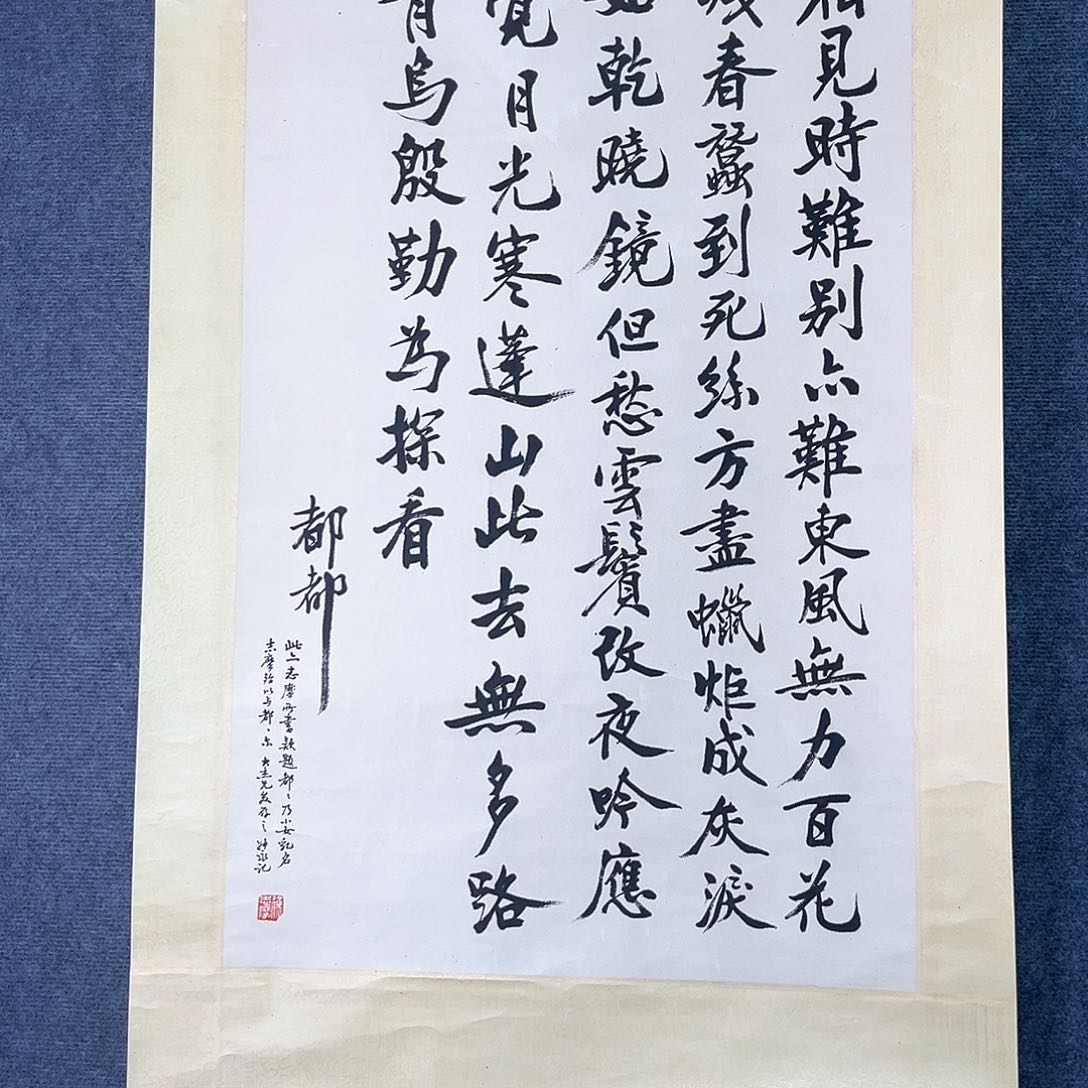 相見時難别亦難東風無力百花
殘春蠶到死絲方盡蠟炬成灰淚
始乾曉鏡但愁雲鬢改夜吟應
覺月光寒蓬山此去無多路
青鳥殷勤為探看
都都
此亦志摩所書款題都、乃小女乳名
志摩